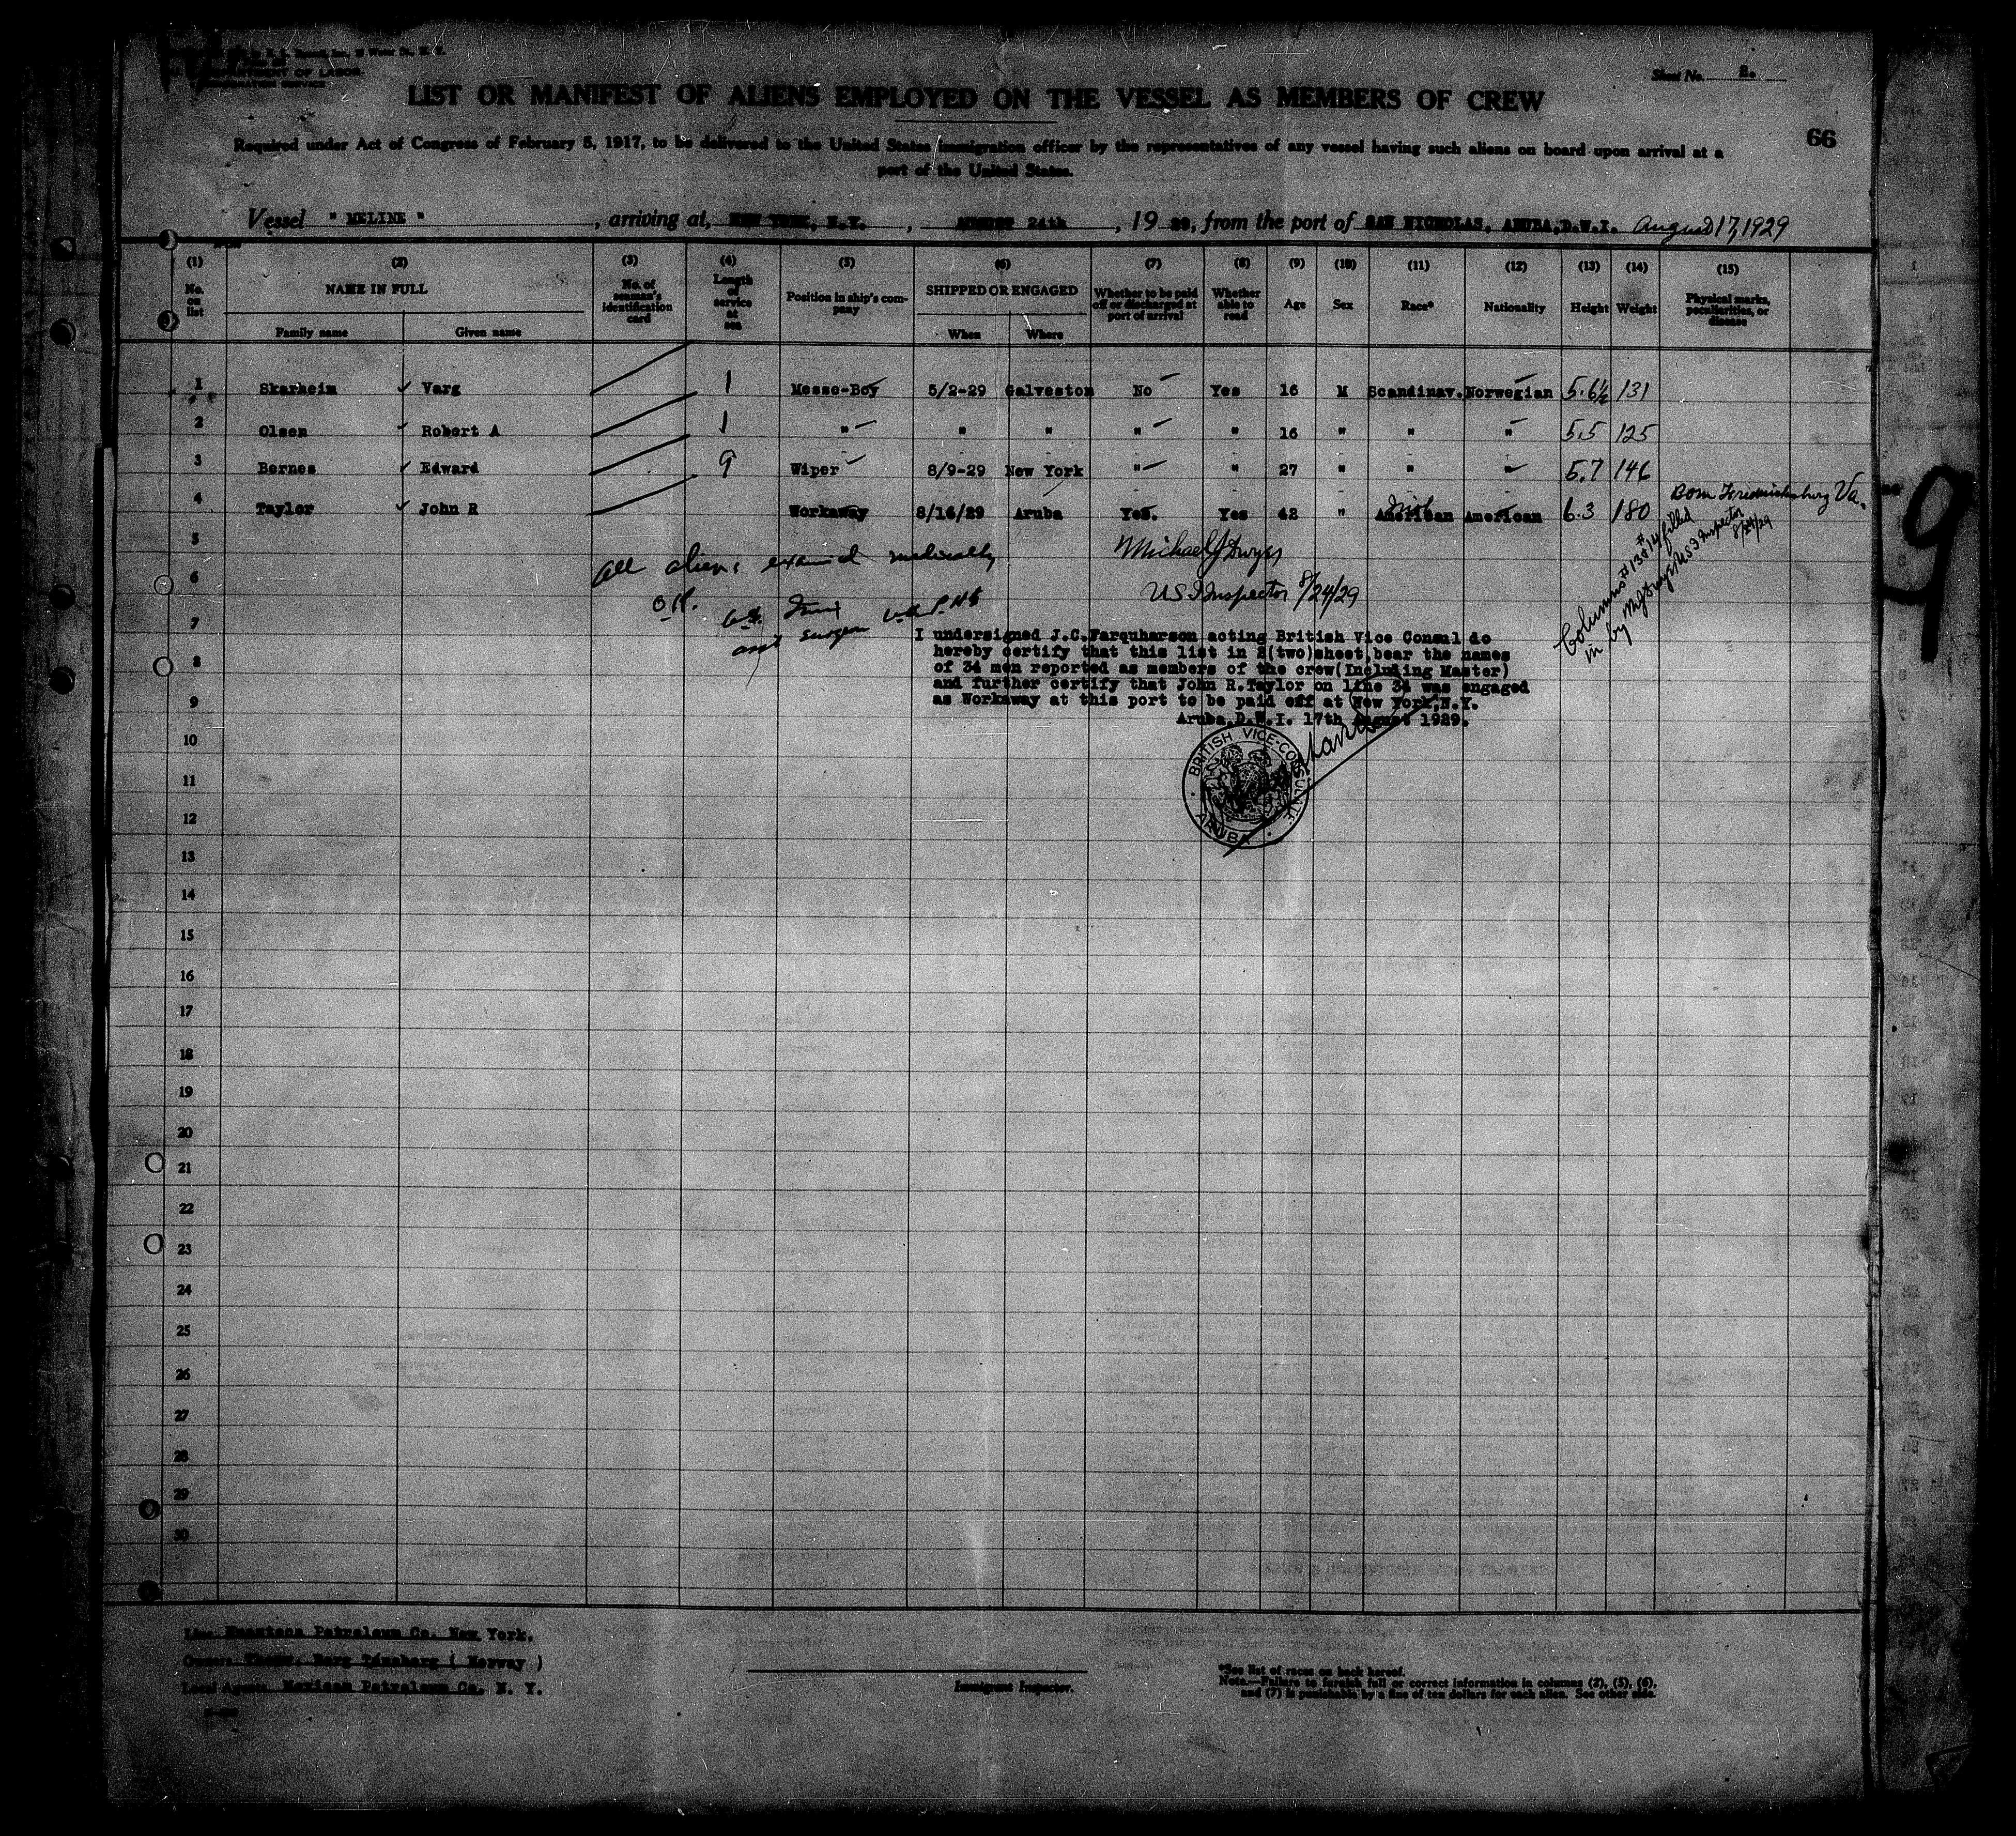 DEPARTMENT OF LABOR
IMMIGRATION SERVICE
Sheet No. 2.
LIST OR MANIFEST OF ALIENS EMPLOYED ON THE VESSEL AS MEMBERS OF CREW
66
Required under Act of Congress of February 5, 1917, to be delivered to the United States immigration officer by the representatives of any vessel having such aliens on board upon arrival at a
port of the United States.
Vessel " MELINE " , arriving at, NEW YORK, N.Y. , AUGUST 24th , 19 29, from the port of SAN NICHOLAS, ARUBA,D.W.I. August 17, 1929
(1) (2) (3) (4) (5) (6) (7) (8) (9) (10) (11) (12) (13) (14) (15)
No. on list NAME IN FULL No. of seaman's identification card Length of service at sea Position in ship's company SHIPPED OR ENGAGED Whether to be paid off or discharged at port of arrival Whether able to read Age Sex Race* Nationality Height Weight Physical marks, peculiarities, or disease
Family name Given name When Where
1 Skarheim ✓ Varg 1 Messe-Boy 5/2-29 Galveston No Yes 16 M Scandinav. Norwegian 5.6½ 131
2 Olsen Robert A 1 " " " " " 16 " " " 5.5 125
3 Bernes ✓ Edward 9 Wiper 8/9-29 New York " " 27 " " " 5.7 146
4 Taylor ✓ John R Workaway 8/16/29 Aruba Yes. Yes 42 " American Irish American 6.3 180 Born Fredericksburg Va.
5
6
7
8
9
10
11
12
13
14
15
16
17
18
19
20
21
22
23
24
25
26
27
28
29
30
All aliens examined medically
O.K.
asst surgeon U.S.P.H.S
Michael J Dwyer
US I Inspector 8/24/29
Columns #13 & #14 filled
in by MJ Dwyer US I Inspector
8/24/29
9
I undersigned J.C.Farquharson acting British Vice Consul do
hereby certify that this list in 2(two)sheet,bear the names
of 34 men reported as members of the crew(Including Master)
and further certify that John R.Taylor on line 34 was engaged
as Workaway at this port to be paid off at New York,N.Y.
Aruba,D.W.I. 17th August 1929.
BRITISH VICE-CONSULATE
ARUBA
Line Huasteca Petroleum Co. New York.
Owners Berg Tönsberg ( Norway )
Local Agents Mexican Petroleum Co. N. Y.
Immigrant Inspector.
*See list of races on back hereof.
Note.—Failure to furnish full or correct information in columns (2), (5), (6),
and (7) is punishable by a fine of ten dollars for each alien. See other side.